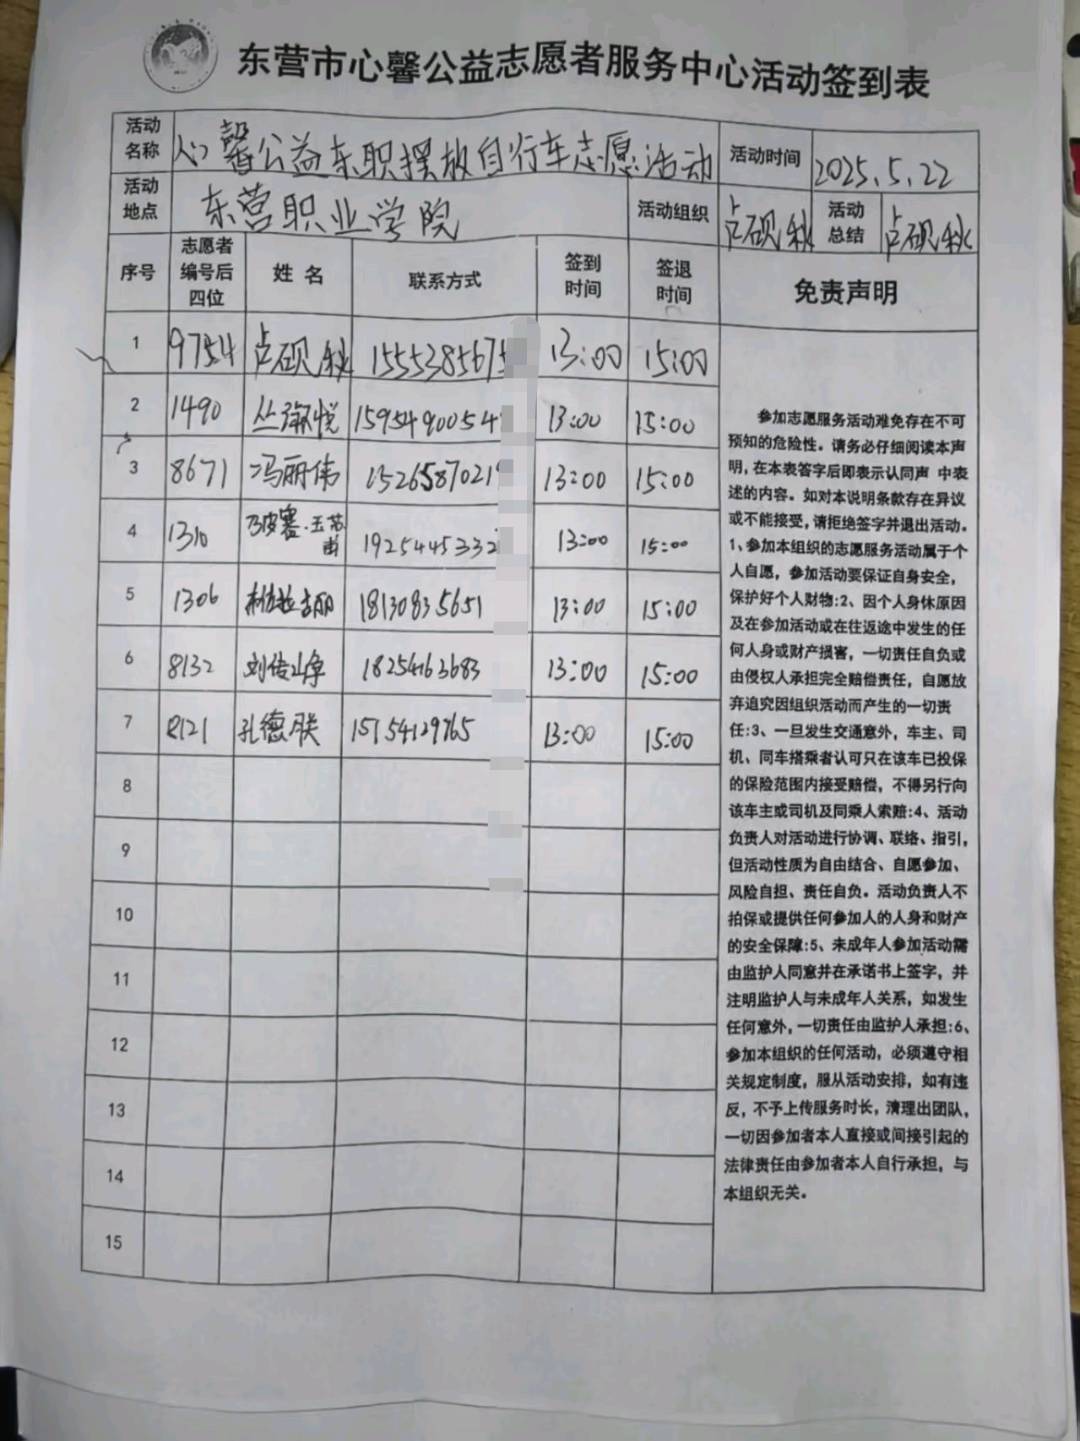 东营市心馨公益志愿者服务中心活动签到表
活动名称 心馨公益东职摆放自行车志愿活动 活动时间 2025.5.22
活动地点 东营职业学院 活动组织 卢砚秋 活动总结 卢砚秋
序号 志愿者编号后四位 姓名 联系方式 签到时间 签退时间 免责声明
1 9754 卢砚秋 1555385675 13:00 15:00
2 1490 丛瀚悦 1595490054 13:00 15:00
3 8671 冯丽伟 1526587021 13:00 15:00
4 1310 1925445332 13:00 15:00
5 1306 18130835651 13:00 15:00
6 8132 18254163683 13:00 15:00
7 8121 孔德朕 15154129765 13:00 15:00
8
9
10
11
12
13
14
15
参加志愿服务活动难免存在不可
预知的危险性。请务必仔细阅读本声
明,在本表签字后即表示认同声 中表
述的内容。如对本说明条款存在异议
或不能接受,请拒绝签字并退出活动。
1、参加本组织的志愿服务活动属于个
人自愿,参加活动要保证自身安全,
保护好个人财物:2、因个人身休原因
及在参加活动或在往返途中发生的任
何人身或财产损害,一切责任自负或
由侵权人承担完全赔偿责任,自愿放
弃追究因组织活动而产生的一切责
任:3、一旦发生交通意外,车主、司
机、同车搭乘者认可只在该车已投保
的保险范围内接受赔偿,不得另行向
该车主或司机及同乘人索赔:4、活动
负责人对活动进行协调、联络、指引,
但活动性质为自由结合、自愿参加、
风险自担、责任自负。活动负责人不
拍保或提供任何参加人的人身和财产
的安全保障:5、未成年人参加活动需
由监护人同意并在承诺书上签字,并
注明监护人与未成年人关系,如发生
任何意外,一切责任由监护人承担:6、
参加本组织的任何活动,必须遵守相
关规定制度,服从活动安排,如有违
反,不予上传服务时长,清理出团队,
一切因参加者本人直接或间接引起的
法律责任由参加者本人自行承担,与
本组织无关。